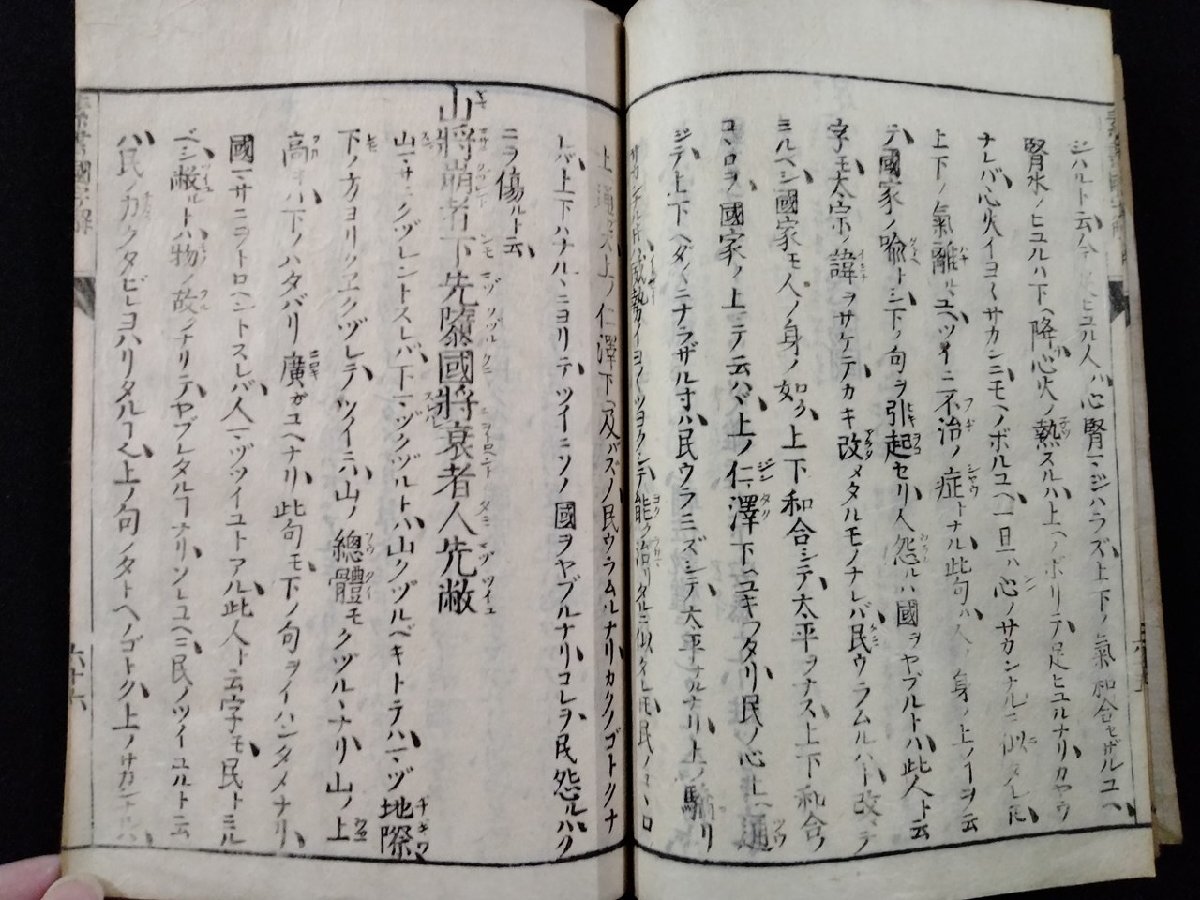 ジハルト云今足ヒユル人ハ心腎マジハラズ上下ノ氣和合セザルユヘ
腎水ノヒユルハ下ヘ降心火ノ熱スルハ上ヘノボリテ足ヒユルナリカヤウ
ナレバ心火イヨ〱サカンニモヘノボルユヘ一旦ハ心ノサカンナルニ似タレ𪜈
上下ノ氣離ルユヘツイニ不治ノ症トナル此句ハ人ノ身ノ上ノイヲ云
テ國家ノ喩トシ下ノ句ヲ引起セリ人怨ルハ國ヲヤブルトハ此人ト云
字モ太宗ノ諱ヲサケテカキ改メタルモノナレバ民ウラムルハト改テ
ミルベシ國家モ人ノ身ノ如ク上下和合シテ太平ヲナス上下和合ノ
コヽロヲ國家ノ上ニテ云ハバ上ノ仁澤下ヘユキワタリ民ノ心上ヘ通
ジテ上下ヘダヽリナラザル寸ハ民ウラミズシテ太平ナルナリ上ノ驕リ
ツヨクシテ能ク治リタルニ似タレ𪜈民ノコヽロ
上ヘ通ゼズ上ノ仁澤下ヘ及バズノ民ウラムルナリカクノゴトクナ
レバ上下ハナルヽニヨリテツイニソノ國ヲヤブルナリコレヲ民怨ルハク
ニヲ傷ルト云
山將崩者下先隳國將衰者人先敝
山マサニクヅレントスレバ下マヅクヅルトハ山クヅルベキトテハマヅ地際
下ノ方ヨリクヱクヅレテツイニハ山ノ總體モクヅルヽナリ山ノ上
高キハ下ノハタバリ廣ガユヘナリ此句モ下ノ句ヲイハンタメナリ
國マサニヲトロヘントスレバ人マヅツイユトアル此人ト云字モ民トミル
ベシ敝ルトハ物ノ故ノナリテヤブレタルヿナリソレユヘニ民ノツイユルト云
ハ民ノ力クタビレヨハリタルヿ也上ノ句ノタトヘノゴトク上ノサカンナルハ
六十六